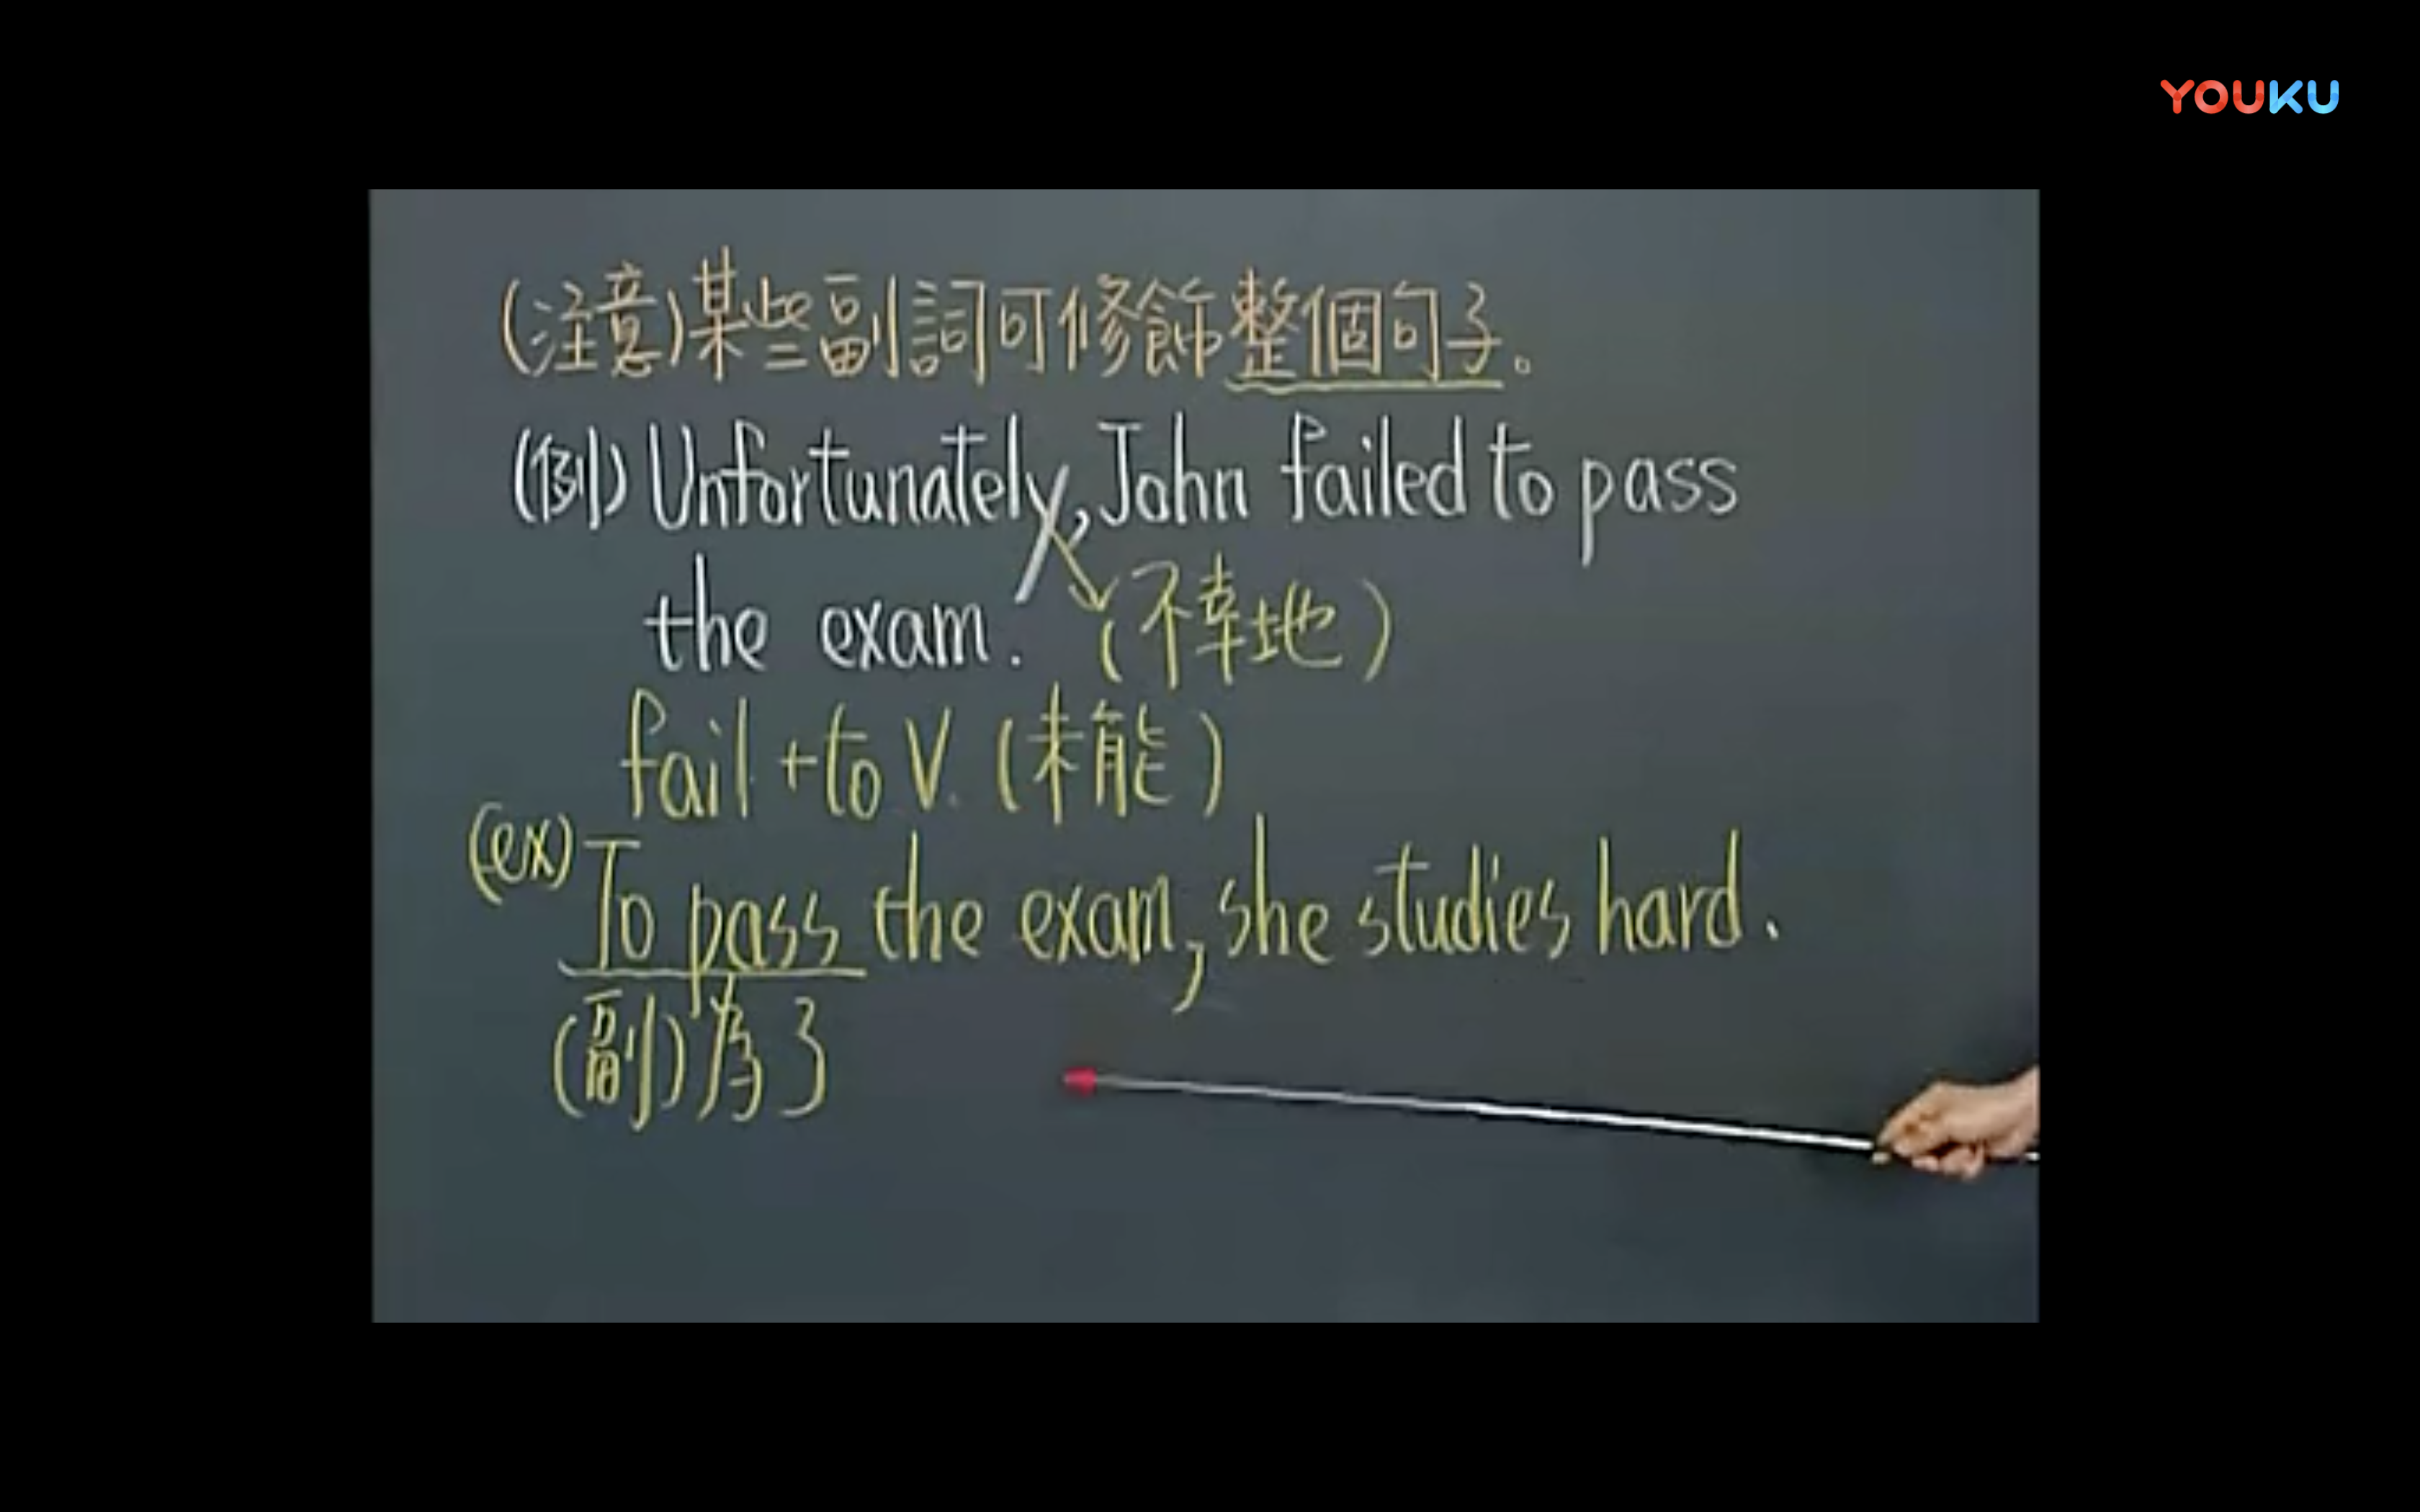 YOUKU
(注意)某些副詞可修飾整個句子。
(例) Unfortunately, John failed to pass
the exam. (不幸地)
fail + to V. (未能)
(ex) To pass the exam, she studies hard.
(副)為了